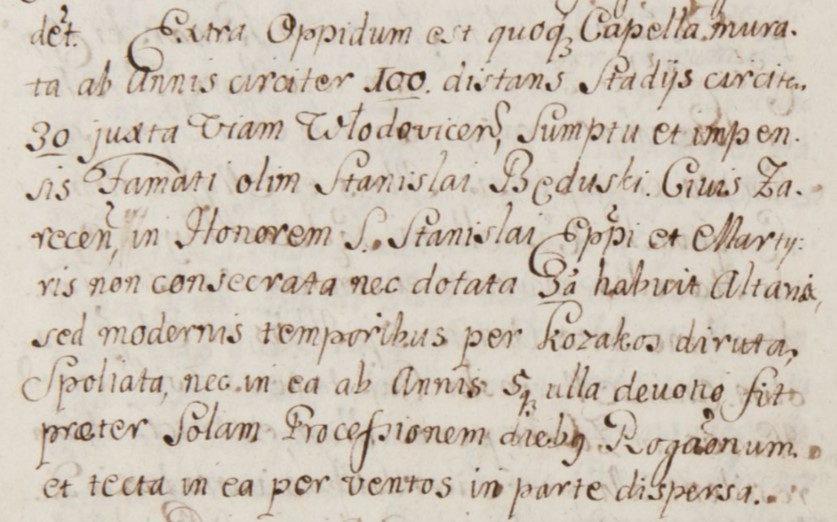 det. Extra Oppidum est quoq₃ Capella mura.
ta ab Annis circiter 100. distans Stadijs circiter
30 juxta Viam Włodovicen, Sumptu et impen.
sis Famati olim Stanislai Będuski. Civis Za.
recen, in Honorem S. Stanislai Eppi et Marty:
ris non consecrata nec dotata 3a habuit Altaria,
sed modernis temporibus per Kozakos diruta,
Spoliata, nec in ea ab Annis ulla devotio fit
præter Solam Processionem dieb9 Rogaonum.
et tecta in ea per ventos in parte dispersa.